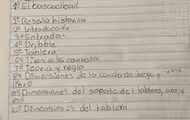 1º El basquetball
1º Reseña histórica
2º Introducción
3º Entradas
4º Dribble
5º Tablero
6º Tiros a la canasta
7º Teoría y regla
8º Dimensiones de la cancha de juego y
9º Dimensiones del soporte del tablero, aro, y
red
10º Dimensiones del tablero